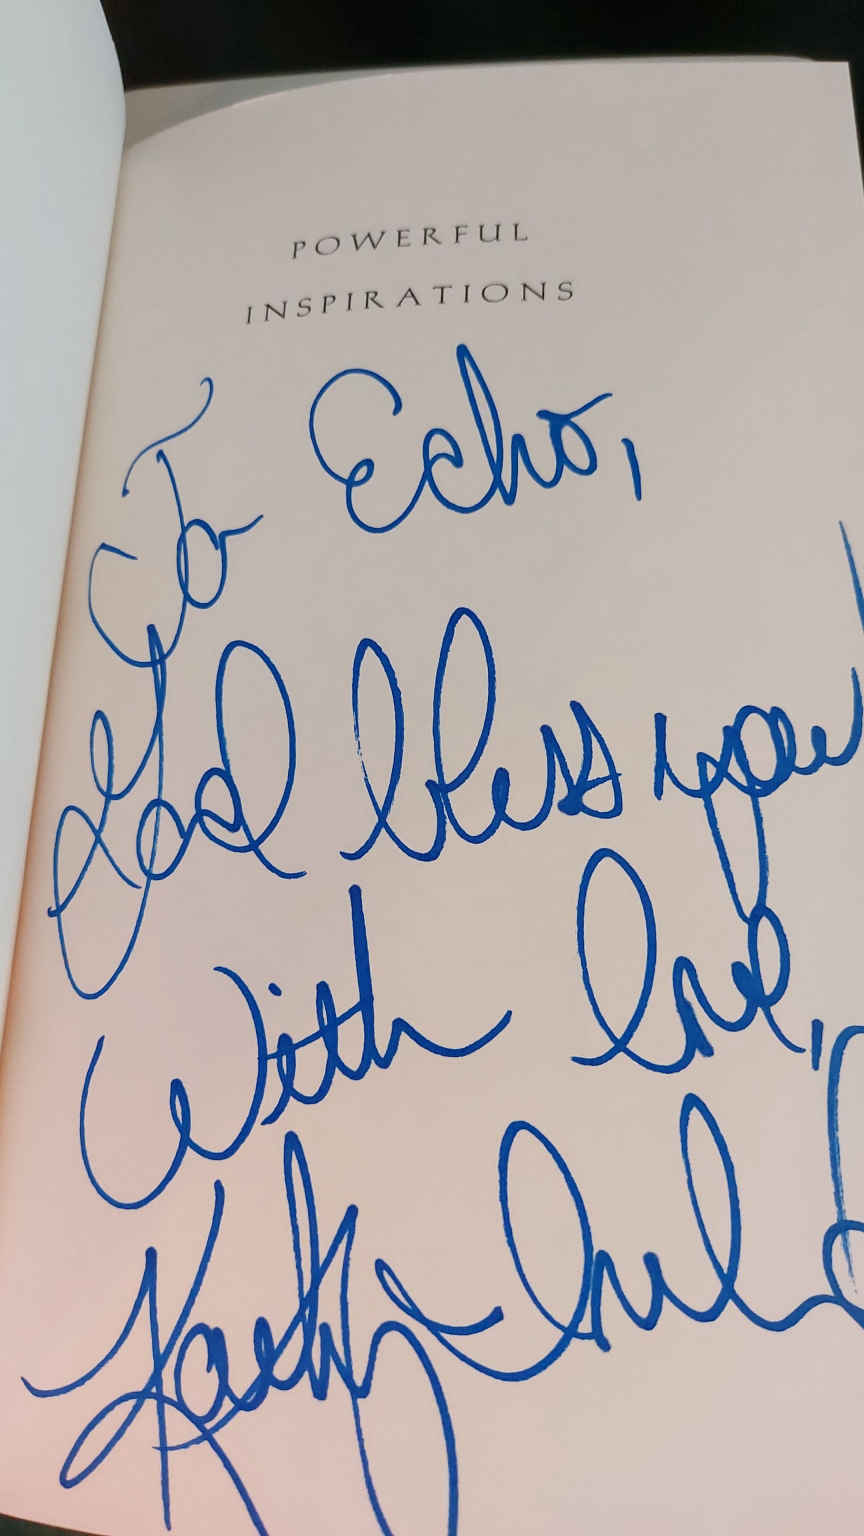 POWERFUL
INSPIRATIONS
To Echo,
God bless you!
With love,
Kathy